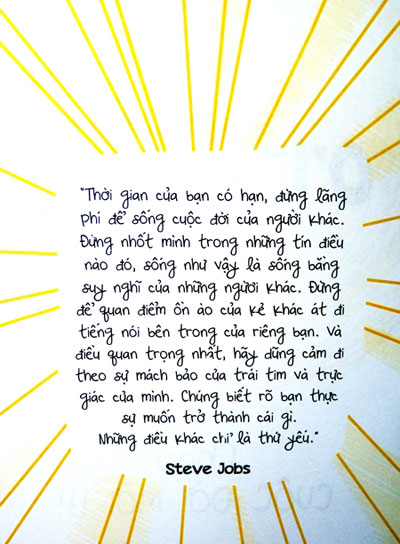 "Thời gian của bạn có hạn, đừng lãng
phí để sống cuộc đời của người khác.
Đừng nhốt mình trong những tín điều
nào đó, sống như vậy là sống bằng
suy nghĩ của những người khác. Đừng
để quan điểm ồn ào của kẻ khác át đi
tiếng nói bên trong của riêng bạn. Và
điều quan trọng nhất, hãy dũng cảm đi
theo sự mách bảo của trái tim và trực
giác của mình. Chúng biết rõ bạn thực
sự muốn trở thành cái gì.
Những điều khác chỉ là thứ yếu."
Steve Jobs